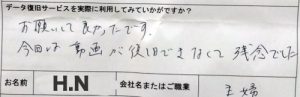 データ復旧サービスを実際に利用してみていかがですか?
お願いして良かったです。
今回は動画が復旧できなくて残念でした
お名前 H.N 会社名またはご職業 主婦